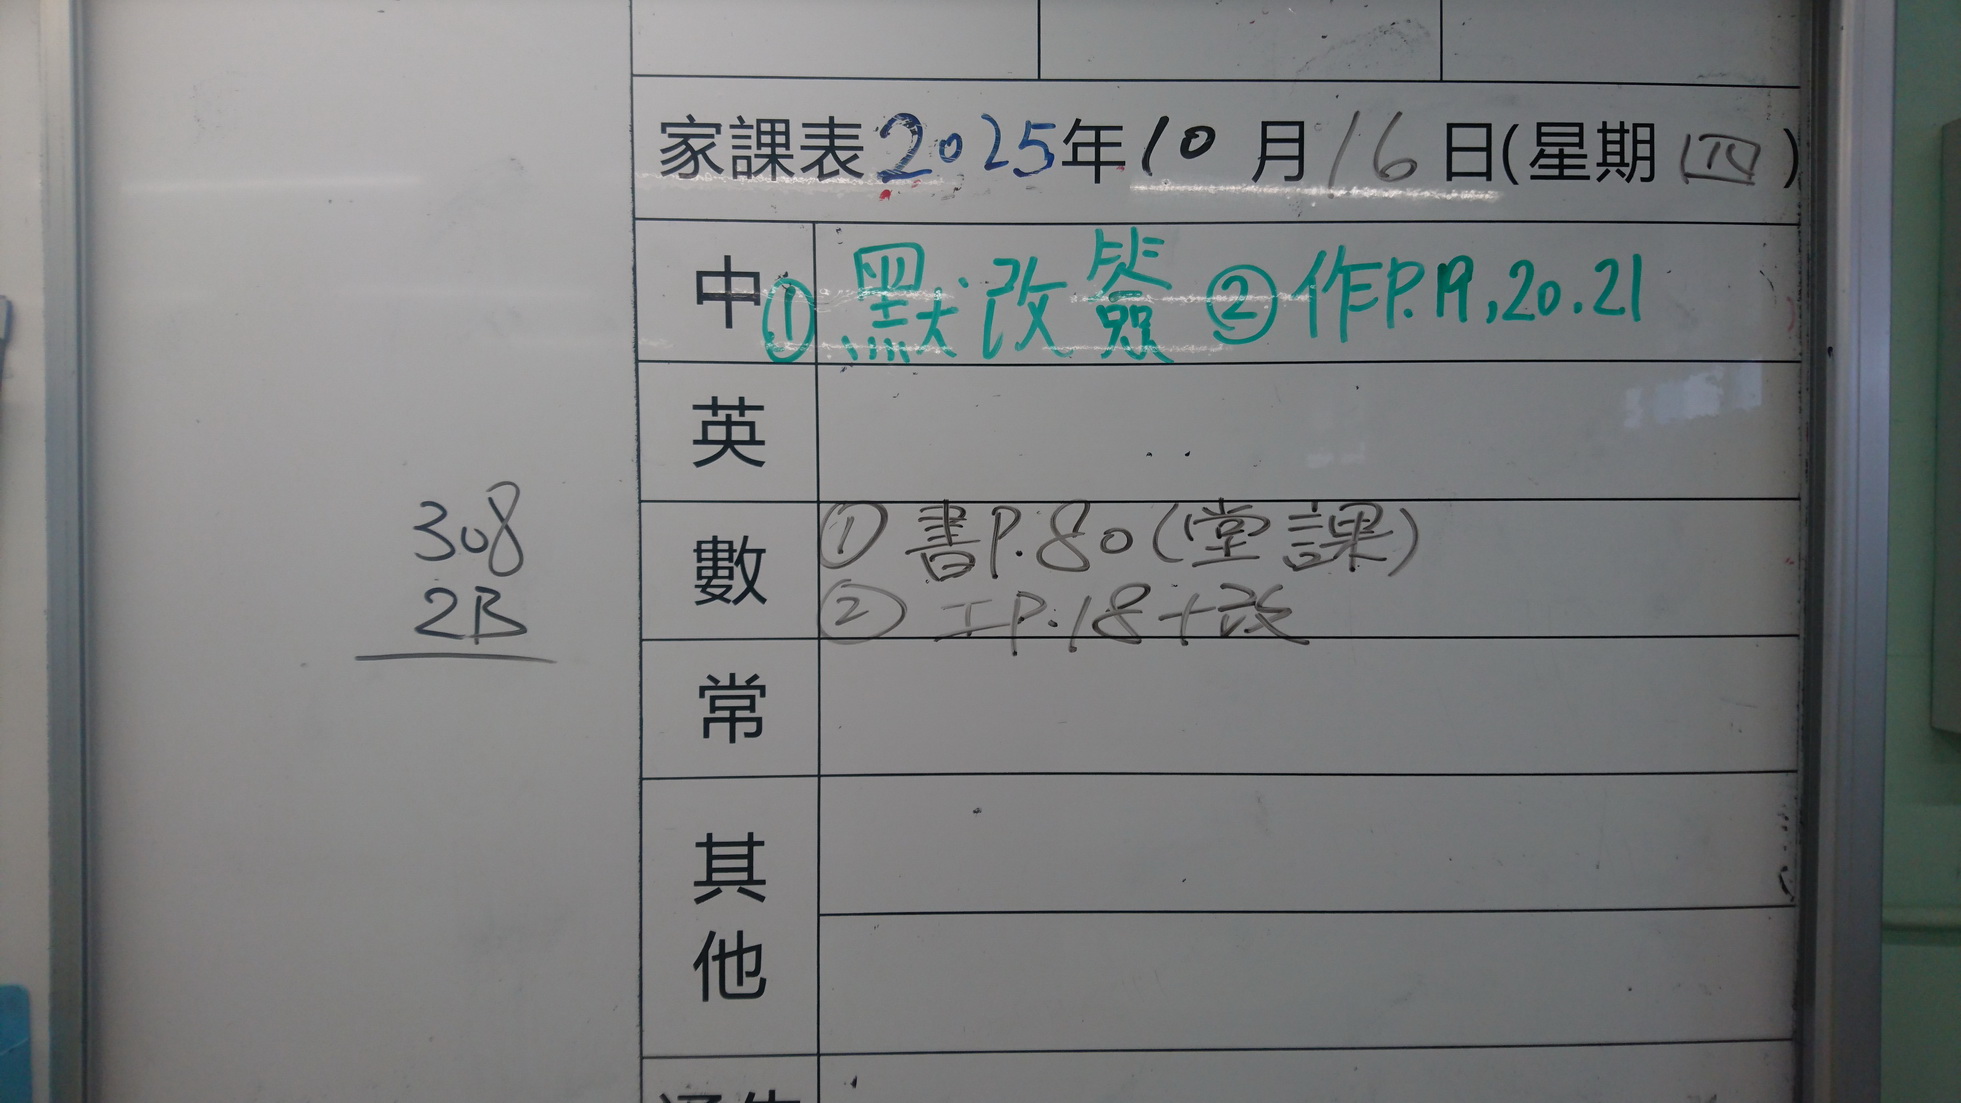 家課表2025年10月16日(星期四)
中 ①默改簽 ②作P.19,20.21
英
308
2B
數 ①書P.80(堂課)
②工P.18+改
常
其他
通告